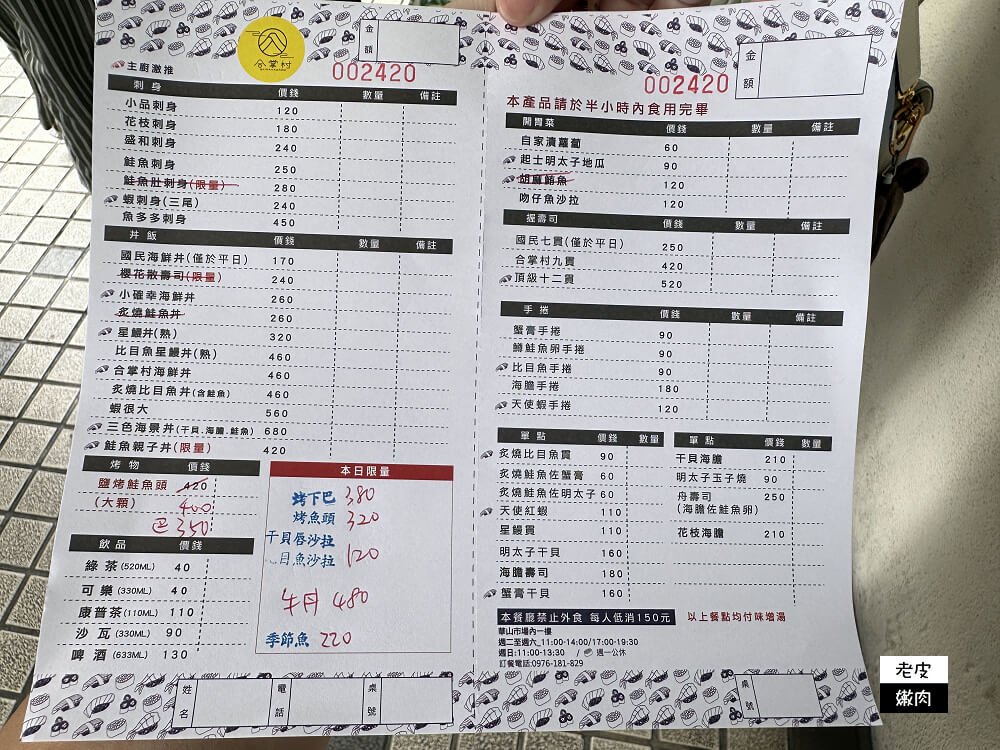 合掌村
金額
002420
主廚激推
刺身 價錢 數量 備註
小品刺身 120
花枝刺身 180
盛和刺身 240
鮭魚刺身 250
鮭魚肚刺身(限量) 280
蝦刺身(三尾) 240
魚多多刺身 450
丼飯 價錢 數量 備註
國民海鮮丼(僅於平日) 170
櫻花散壽司(限量) 240
小確幸海鮮丼 260
炙燒鮭魚丼 260
星鰻丼(熟) 320
比目魚星鰻丼(熟) 460
合掌村海鮮丼 460
炙燒比目魚丼(含鮭魚) 460
蝦很大 560
三色海景丼(干貝.海膽.鮭魚) 680
鮭魚親子丼(限量) 420
烤物 價錢
鹽烤鮭魚頭 420
(大顆) 400
巴 350
飲品 價錢
綠茶(520ML) 40
可樂(330ML) 40
康普茶(110ML) 110
沙瓦(330ML) 90
啤酒(633ML) 130
本日限量
烤下巴 380
烤魚頭 320
干貝唇沙拉
目魚沙拉 120
牛丼 480
季節魚 220
姓名
電話
桌號
金額
002420
本產品請於半小時內食用完畢
開胃菜 價錢 數量 備註
自家漬蘿蔔 60
起士明太子地瓜 90
胡麻鮪魚 120
吻仔魚沙拉 120
握壽司 價錢 數量 備註
國民七貫(僅於平日) 250
合掌村九貫 420
頂級十二貫 520
手捲 價錢 數量 備註
蟹膏手捲 90
鱒鮭魚卵手捲 90
比目魚手捲 90
海膽手捲 180
天使蝦手捲 120
單點 價錢 數量
炙燒比目魚貫 90
炙燒鮭魚佐蟹膏 60
炙燒鮭魚佐明太子 60
天使紅蝦 110
星鰻貫 110
明太子干貝 160
海膽壽司 180
蟹膏干貝 160
單點 價錢 數量
干貝海膽 210
明太子玉子燒 90
舟壽司 250
(海膽佐鮭魚卵)
花枝海膽 210
本餐廳禁止外食 每人低消150元 以上餐點均付味增湯
華山市場內一樓
週二至週六_11:00-14:00/17:00-19:30
週日:11:00-13:30 / 週一公休
訂餐電話:0976-181-829
桌號
老皮
嫩肉